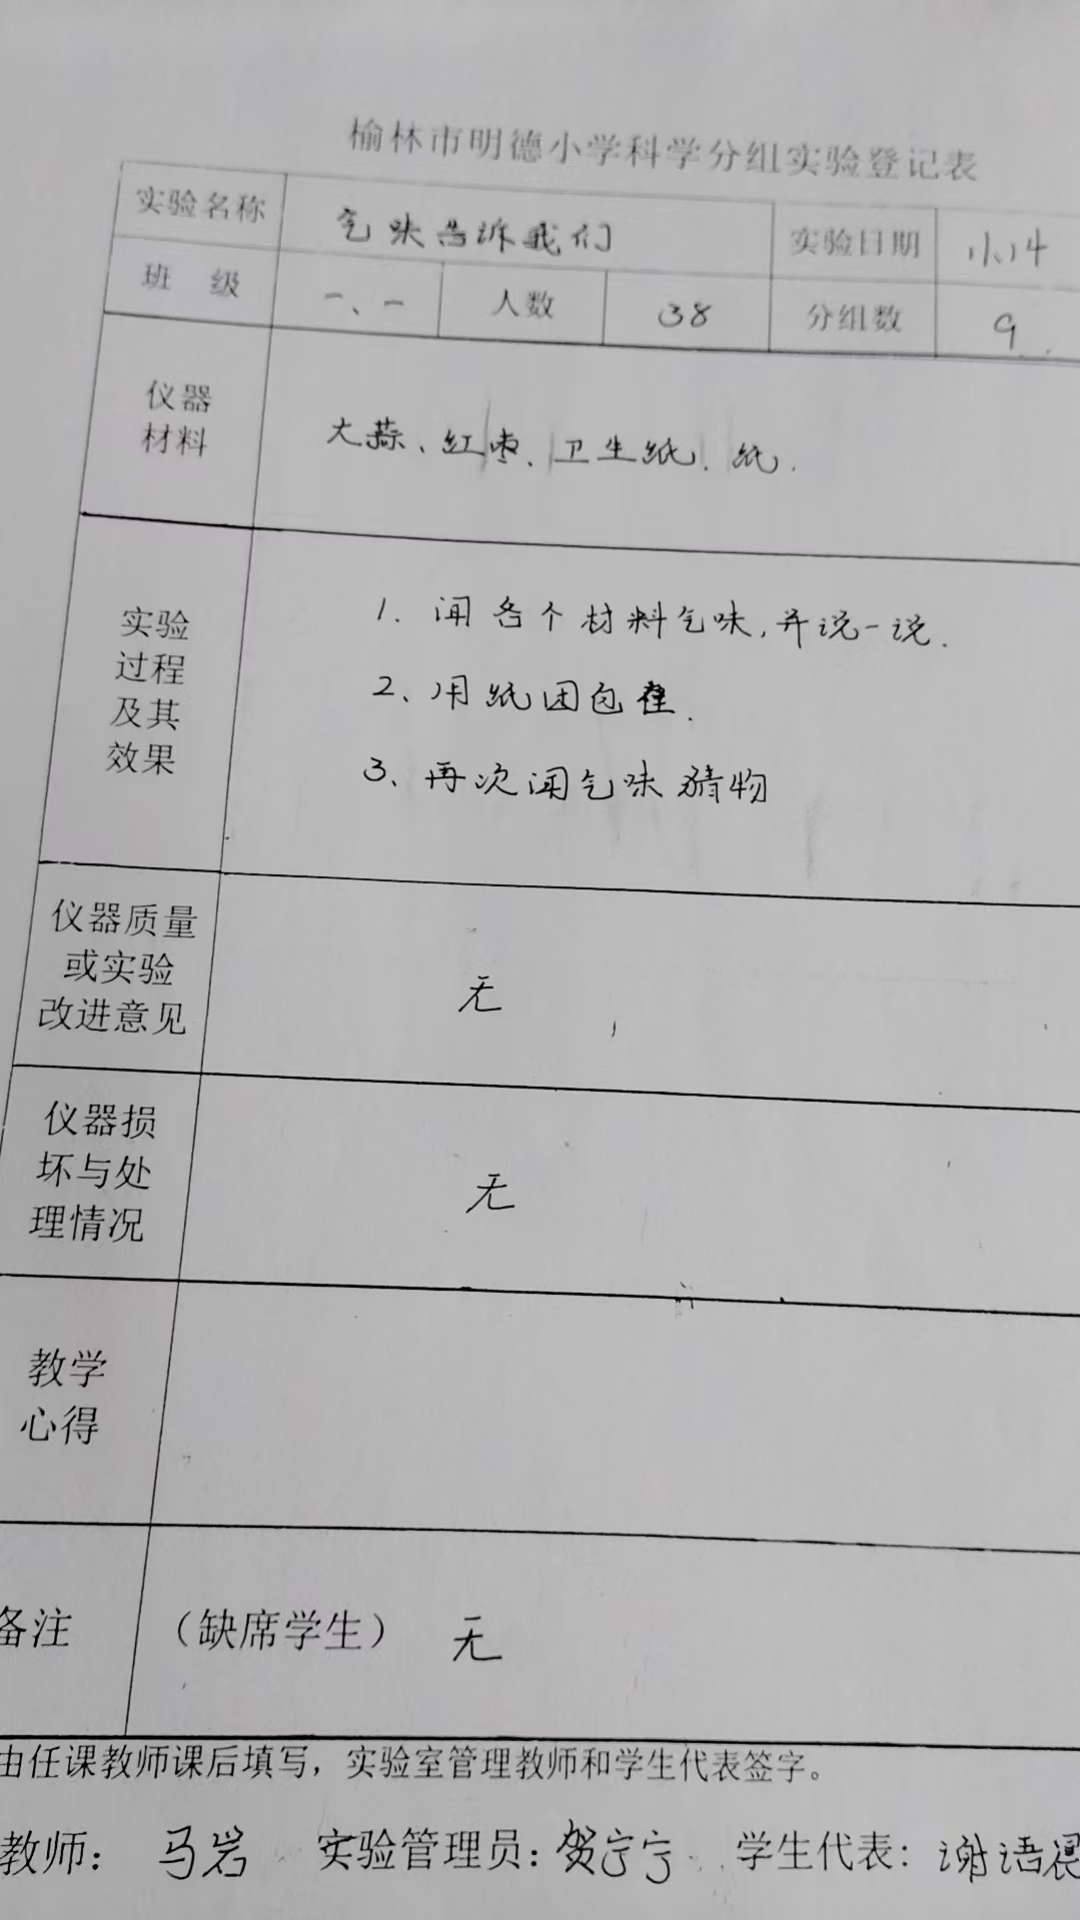 榆林市明德小学科学分组实验登记表
实验名称 气味告诉我们 实验日期 11.14
班 级 一、一 人数 38 分组数 9
仪器
材料
大蒜、红枣、卫生纸、纸.
实验
过程
及其
效果
1. 闻各个材料气味,并说一说.
2、用纸团包住.
3、再次闻气味猜物
仪器质量
或实验
改进意见
无
仪器损
坏与处
理情况
无
教学
心得
备注 （缺席学生） 无
由任课教师课后填写，实验室管理教师和学生代表签字。
教师： 马岩 实验管理员：贺宁宁 学生代表：谢语